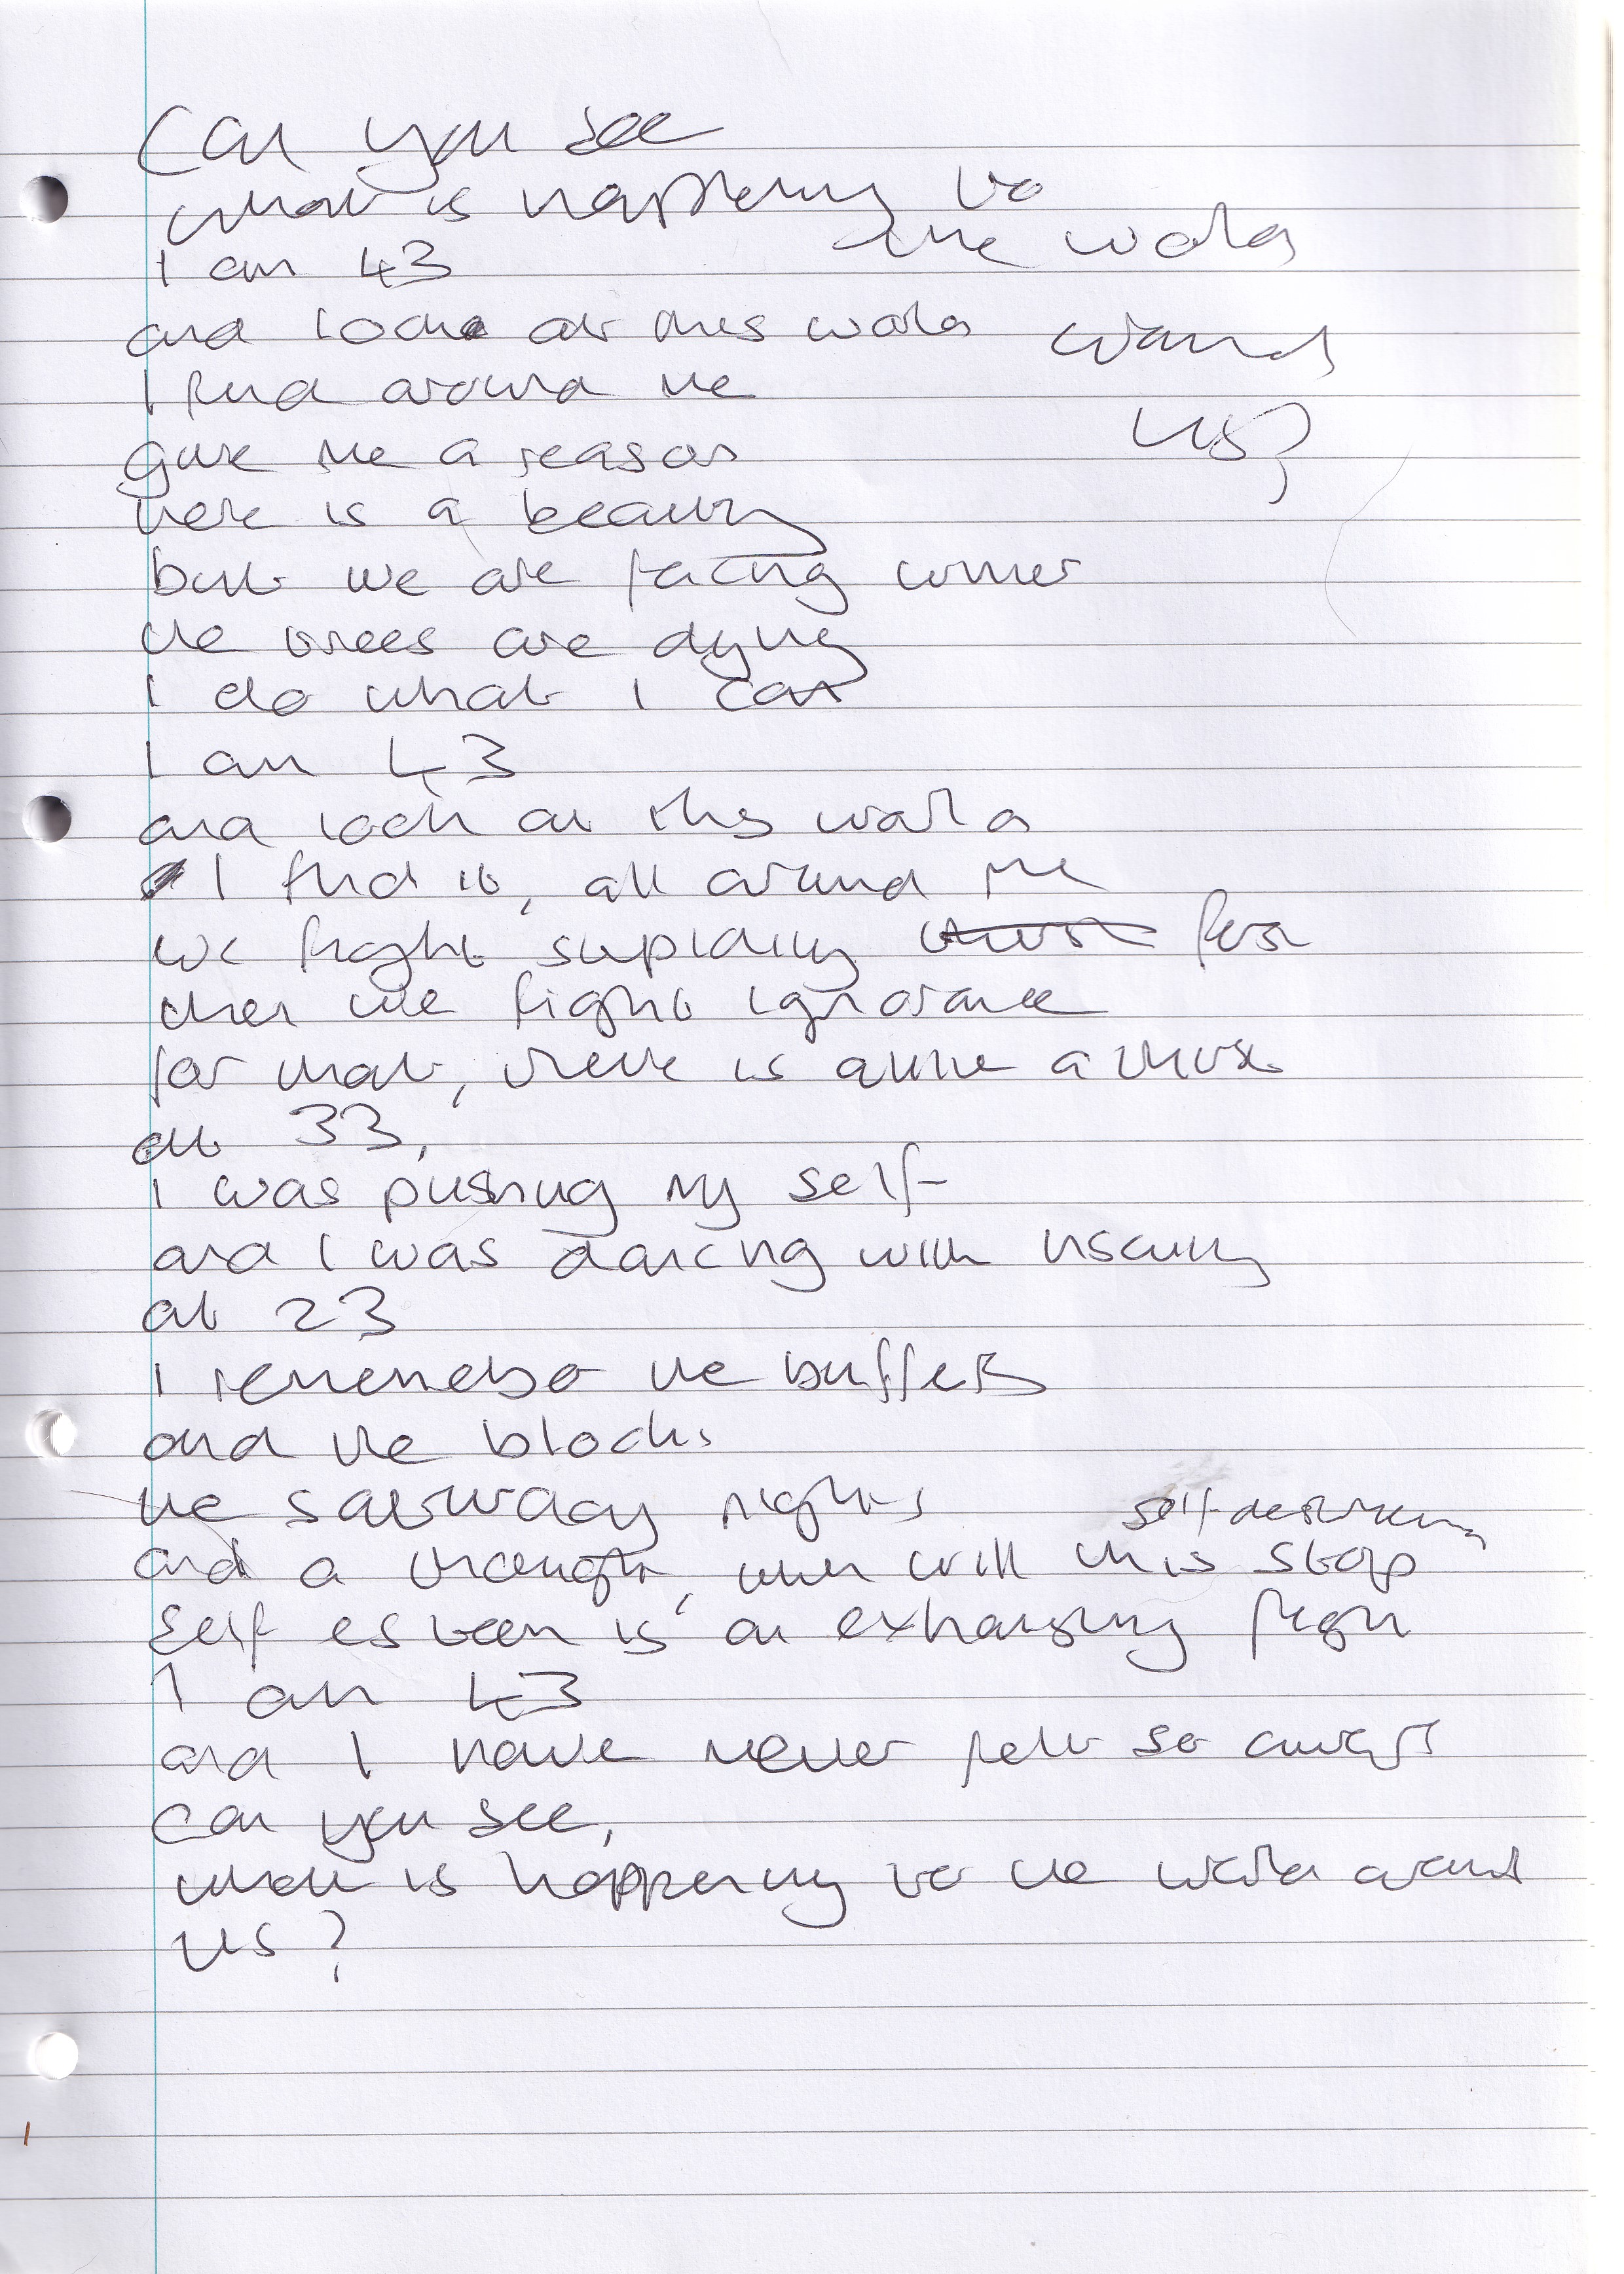 Can you see
what is happening to
the world
around
us?
I am 43
and look at this world
I find around me
give me a reason
here is a beauty
but we are facing
the trees are dying
I do what I can
I am 43
and look at this world
I find it, all around me
we fight stupidity first
then we fight ignorance
for that, there is quite a
at 33,
I was pushing my self
and I was dancing with
at 23
I remember the buffets
and the blocks
the saturday nights
and a thought, when will this self-destruction stop
Self esteem is an exhausting fight
I am 43
and I have never felt so
can you see,
what is happening to the world around
us?